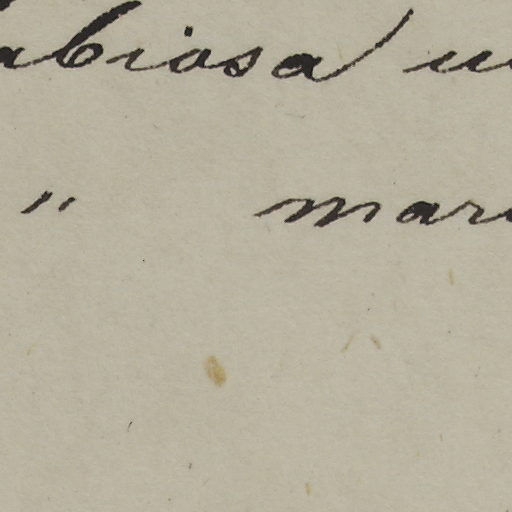 abiosa u
" mar